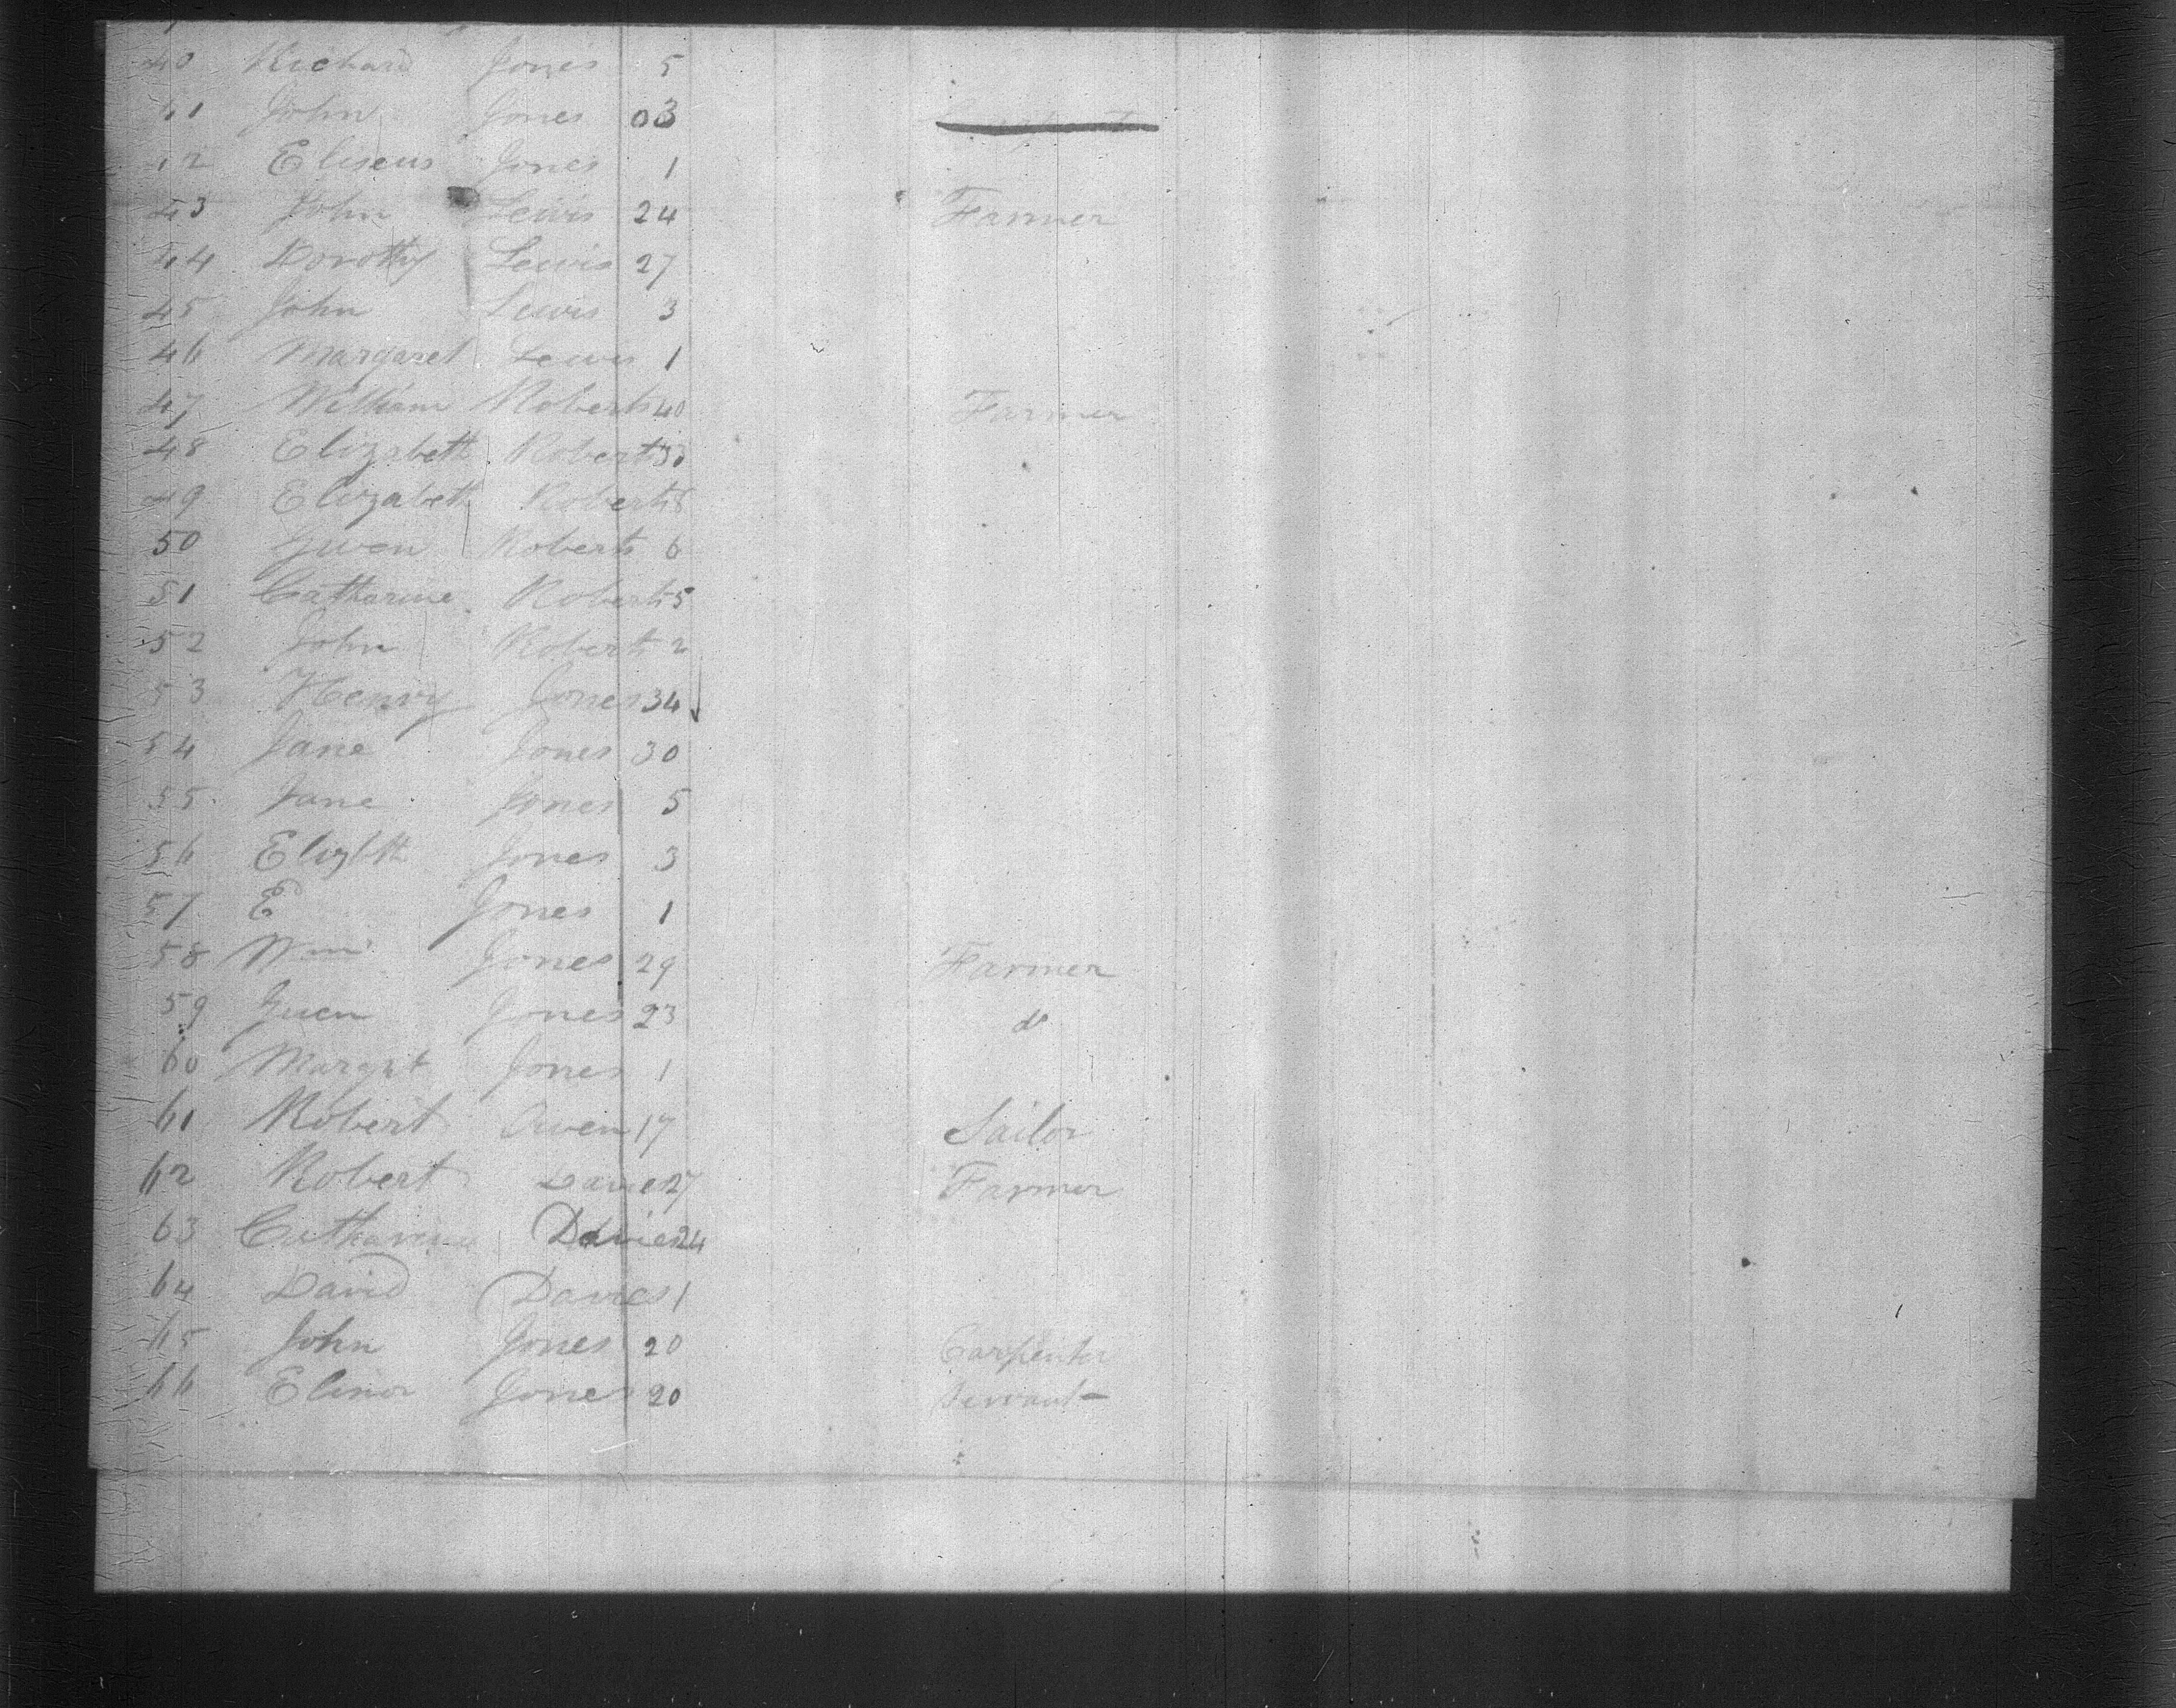 40 Richard Jones 5
41 John Jones 03
42 Eliseus Jones 1
43 John Lewis 24 Farmer
44 Dorothy Lewis 27
45 John Lewis 3
46 Margaret Lewis 1
47 William Roberts 40 Farmer
48 Elizabeth Roberts 30
49 Elizabeth Roberts 8
50 Gwen Roberts 6
51 Catharine Roberts 5
52 John Roberts 2
53 Henry Jones 34
54 Jane Jones 30
55 Jane Jones 5
56 Elizbth Jones 3
57 E Jones 1
58 Wm Jones 29 Farmer
59 Guen Jones 23 do
60 Margrt Jones 1
61 Robert Owen 17 Sailor
62 Robert Davies 27 Farmer
63 Catharine Davies 24
64 David Davies 1
65 John Jones 20 Carpenter
66 Elinor Jones 20 Servant